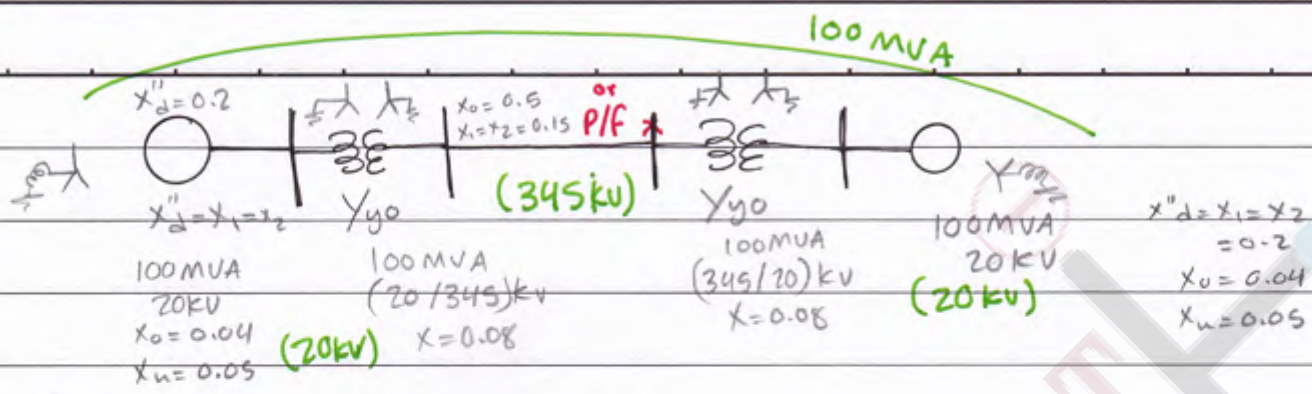 100 MVA
X"d=0.2
X0=0.5
X1=X2=0.15
or
P/F
(345kV)
X"d=X1=X2
Yy0
Yy0
100MVA
20KV
X0=0.04
Xn=0.05
(20kV)
100 MVA
(20/345)kV
X=0.08
100MVA
(345/20)kV
X=0.08
100MVA
20KV
(20kV)
X"d=X1=X2
=0.2
X0=0.04
Xn=0.05